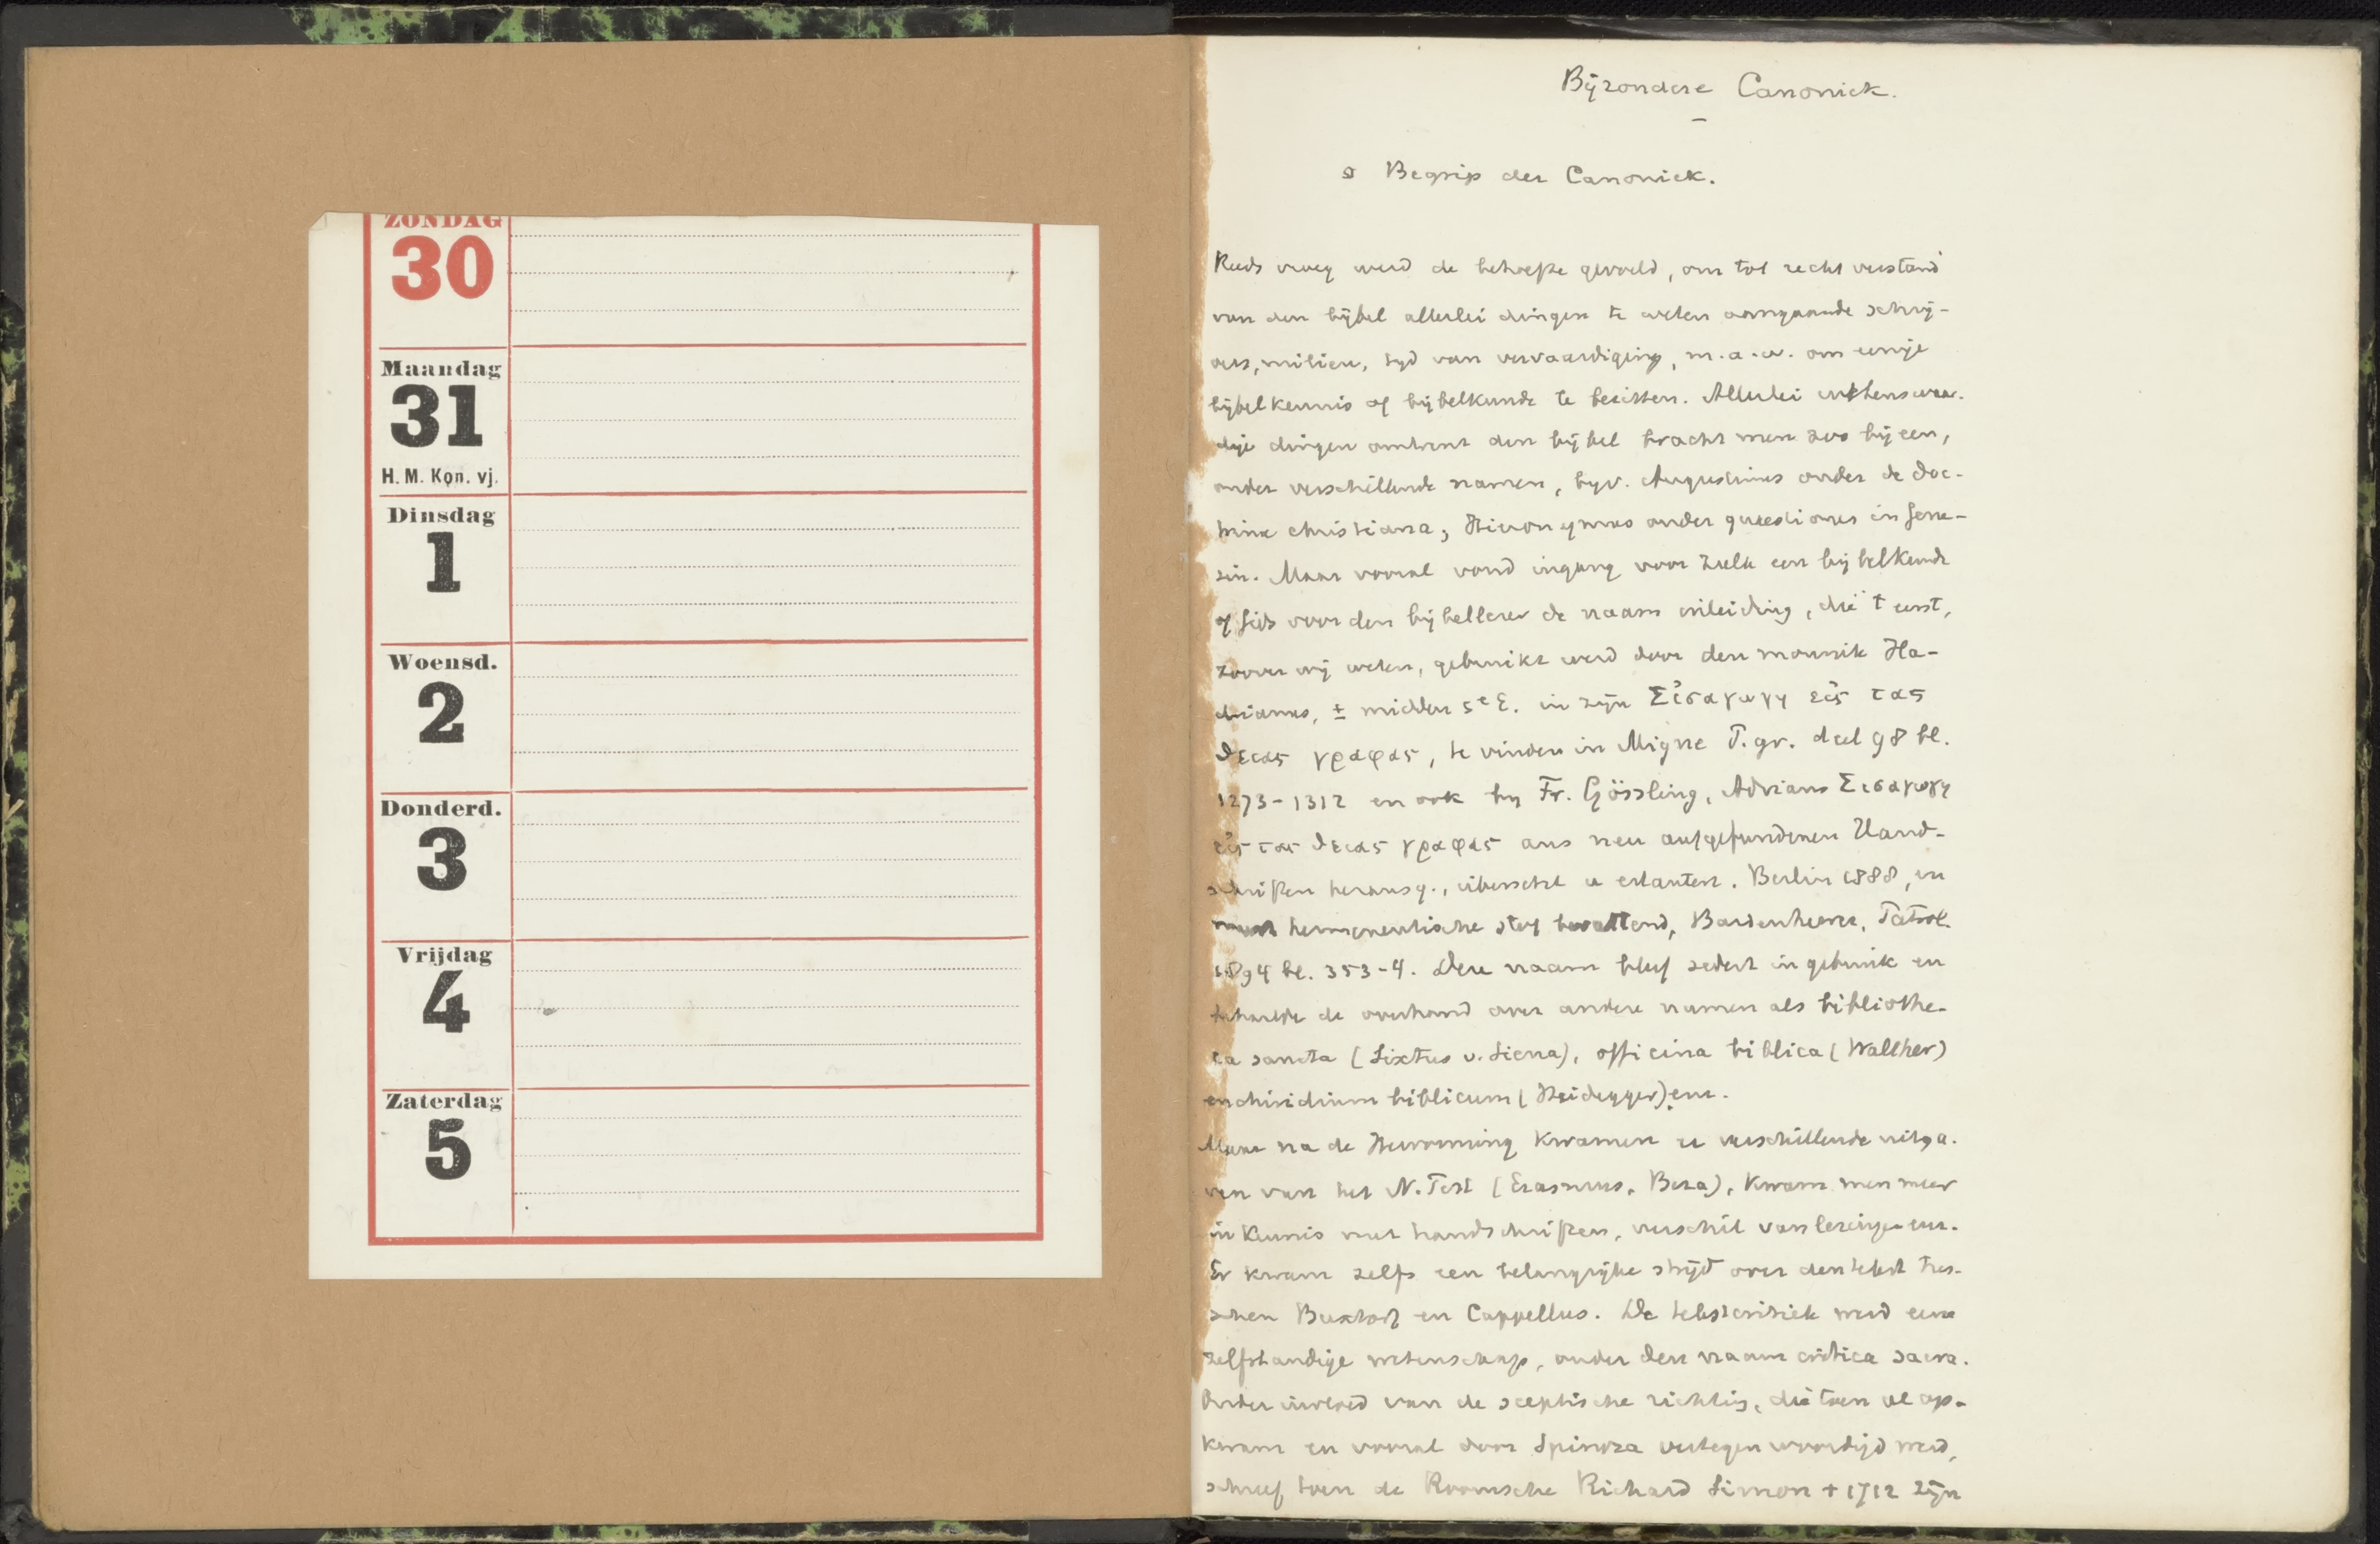 ZONDAG
30
Maandag
31
H. M. Kon. vj.
Dinsdag
1
Woensd.
2
Donderd.
3
Vrijdag
4
Zaterdag
5
Bijzondere Canoniek.
§ Begrip der Canoniek.
Reeds vroeg werd de behoefte gevoeld, om tot recht verstand
van den bijbel allerlei dingen te weten aangaande schrij-
vers, milieu, tijd van vervaardiging, m.a.w. om eenige
bijbelkennis of bijbelkunde te bezitten. Allerlei wetenswaar-
dige dingen omtrent den bijbel bracht men zoo bijeen,
onder verschillende namen, bijv. Augustinus onder de doc-
trina christiana, Hieronymus onder quaestiones in Gene-
sin. Maar vooral vond ingang voor zulk een bijbelkunde
of gids voor den bijbellezer de naam inleiding, die 't eerst,
zoover wij weten, gebruikt werd door den monnik Ha-
drianus, ± midden 5e E. in zijn Εἰσαγωγη εἰς τας
θειας γραφας, te vinden in Migne P. gr. deel 98 bl.
1273-1312 en ook bij Fr. Gössling, Adrians Εισαγωγη
εἰς τας θειας γραφας aus neu aufgefundenen Hand-
schriften herausg., übersetzt u erläutert. Berlin 1888, en
meest hermeneutische stof bevattend, Bardenhewer, Patrol.
1894 bl. 353-4. Deze naam bleef sedert in gebruik en
behaalde de overhand over andere namen als bibliothe-
ca sancta (Sixtus v. Siena), officina biblica (Walther)
enchiridium biblicum (Heidegger) enz.
Maar na de Hervorming kwamen er verschillende uitga-
ven van het N. Test (Erasmus, Beza), kwam men meer
in kennis met handschriften, verschil van lezingen enz.
Er kwam zelfs een belangrijke strijd over den tekst tus-
schen Buxtorf en Cappellus. De tekstcritiek werd eene
zelfstandige wetenschap, onder den naam critica sacra.
Onder invloed van de sceptische richting, die toen al op-
kwam en vooral door Spinoza vertegenwoordigd werd,
schreef toen de Roomsche Richard Simon † 1712 zijn